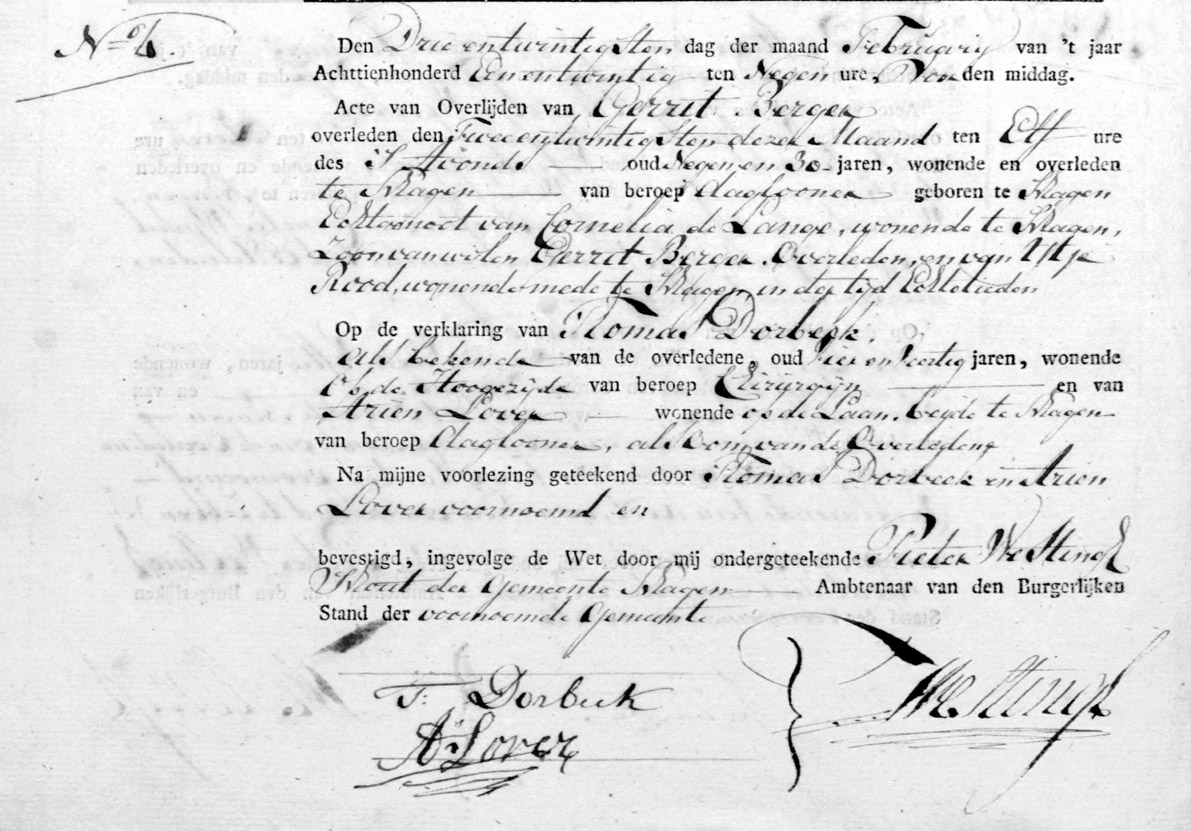 No. 6.
Den Drie entwintigsten dag der maand February van 't jaar
Achttienhonderd Eenentwintig ten Negen ure Voor den middag.
Acte van Overlijden van Gerrit Berger
overleden den Tweeentwintigsten dezer Maand ten Elf ure
des S'Avonds oud Negen en 30 jaren, wonende en overleden
te van beroep Daglooner geboren te
Echtgenoot van Cornelia de Lange, wonende te
Zoon van wilen Gerrit Berger Overleden, en van
Rood, wonende mede te in der tijd Echtelieden
Op de verklaring van Thomas Dorbeck,
als bekende van de overledene, oud Vier en Veertig jaren, wonende
Op de Hoogezijde van beroep Chirurgijn en van
Arien Lover wonende op de Laan, beyde te
van beroep Daglooner, als Oom van de Overledene
Na mijne voorlezing geteekend door Thomas Dorbeck en Arien
Lover voornoemd en
bevestigd, ingevolge de Wet door mij ondergeteekende Pieter Westingh
Schout der Gemeente Ambtenaar van den Burgerlijken
Stand der voornoemde Gemeente
T: Dorbeck
A Lover
Westingh